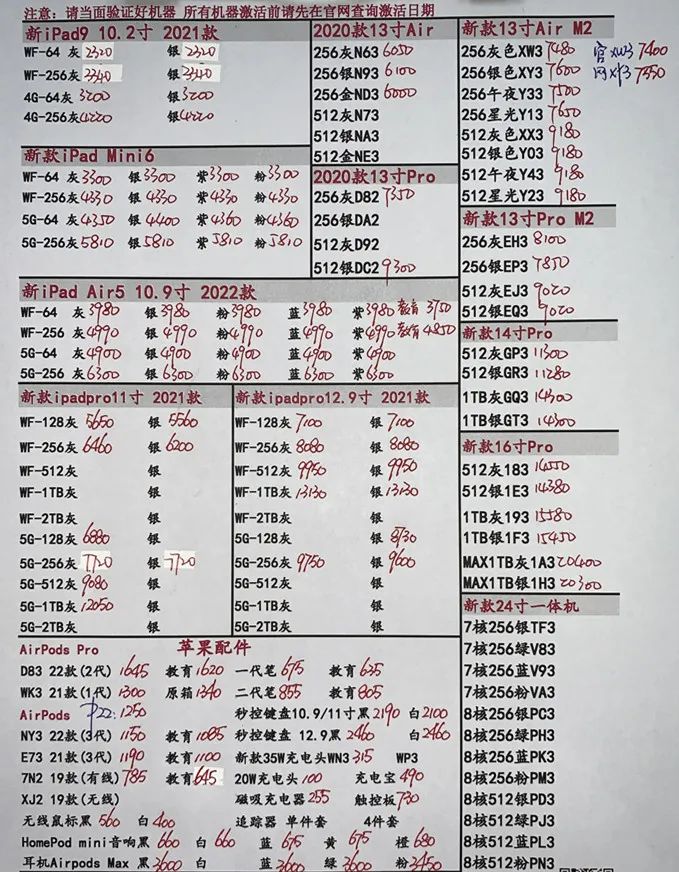 注意：请当面验证好机器 所有机器激活前请先在官网查询激活日期
新iPad9 10.2寸 2021款
WF-64 灰2320 银2320
WF-256灰2340 银2340
4G-64灰3200 银3200
4G-256灰4220 银4220
新款iPad Mini6
WF-64 灰3300 银3300 紫3300 粉3300
WF-256灰4330 银4330 紫4330 粉4330
5G-64 灰4350 银4400 紫4360 粉4360
5G-256灰5810 银5810 紫5810 粉5810
2020款13寸Air
256灰N63 6050
256银N93 6100
256金ND3 6000
512灰N73
512银NA3
512金NE3
2020款13寸Pro
256灰D82 7350
256银DA2
512灰D92
512银DC2 9300
新款13寸Air M2
256灰色XW3 7480 官XW3 7400
256银色XY3 7600 网XY3 7550
256午夜Y33 7500
256星光Y13 7650
512灰色XX3 9180
512银色Y03 9180
512午夜Y43 9180
512星光Y23 9180
新款13寸Pro M2
256灰EH3 8100
256银EP3 7850
512灰EJ3 9020
512银EQ3 9020
新款14寸Pro
512灰GP3 11300
512银GR3 11280
1TB灰GQ3 14300
1TB银GT3 14300
新款16寸Pro
512灰183 14550
512银1E3 14380
1TB灰193 15580
1TB银1F3 15450
MAX1TB灰1A3 20400
MAX1TB银1H3 20300
新款24寸一体机
7核256银TF3
7核256绿V83
7核256蓝V93
7核256粉VA3
8核256银PC3
8核256绿PH3
8核256蓝PK3
8核256粉PM3
8核512银PD3
8核512绿PJ3
8核512蓝PL3
8核512粉PN3
新iPad Air5 10.9寸 2022款
WF-64 灰3980 银3980 粉3980 蓝3980 紫3980 教育3750
WF-256 灰4990 银4990 粉4990 蓝4990 紫4990 教育4850
5G-64 灰4900 银4900 粉4900 蓝4900 紫4900
5G-256 灰6300 银6300 粉6300 蓝6300 紫6300
新款ipadpro11寸 2021款
WF-128灰5650 银5560
WF-256灰6460 银6200
WF-512灰 银
WF-1TB灰 银
WF-2TB灰 银
5G-128灰6880 银
5G-256灰7720 银7720
5G-512灰9080 银
5G-1TB灰12050 银
5G-2TB灰 银
新款ipadpro12.9寸 2021款
WF-128灰7100 银7100
WF-256灰8080 银8080
WF-512灰9950 银9950
WF-1TB灰13130 银13130
WF-2TB灰 银
5G-128灰 银8730
5G-256灰9750 银9600
5G-512灰 银
5G-1TB灰 银
5G-2TB灰 银
AirPods Pro 苹果配件
D83 22款(2代)1645 教育1620 一代笔675 教育635
WK3 21款(1代)1300 原箱1340 二代笔855 教育805
AirPods 22:1250 秒控键盘10.9/11寸黑2190 白2100
NY3 22款(3代)1150 教育1085 秒控键盘 12.9黑2460 白2460
E73 21款(3代)1190 教育1100 新款35W充电头WN3 315 WP3
7N2 19款(有线)785 教育645 20W充电头100 充电宝490
XJ2 19款(无线) 磁吸充电器255 触控板730
无线鼠标黑560 白400 追踪器 单件套 4件套
HomePod mini音响黑660 白660 蓝675 黄675 橙680
耳机Airpods Max 黑3600 白 蓝3600 绿3600 粉3450